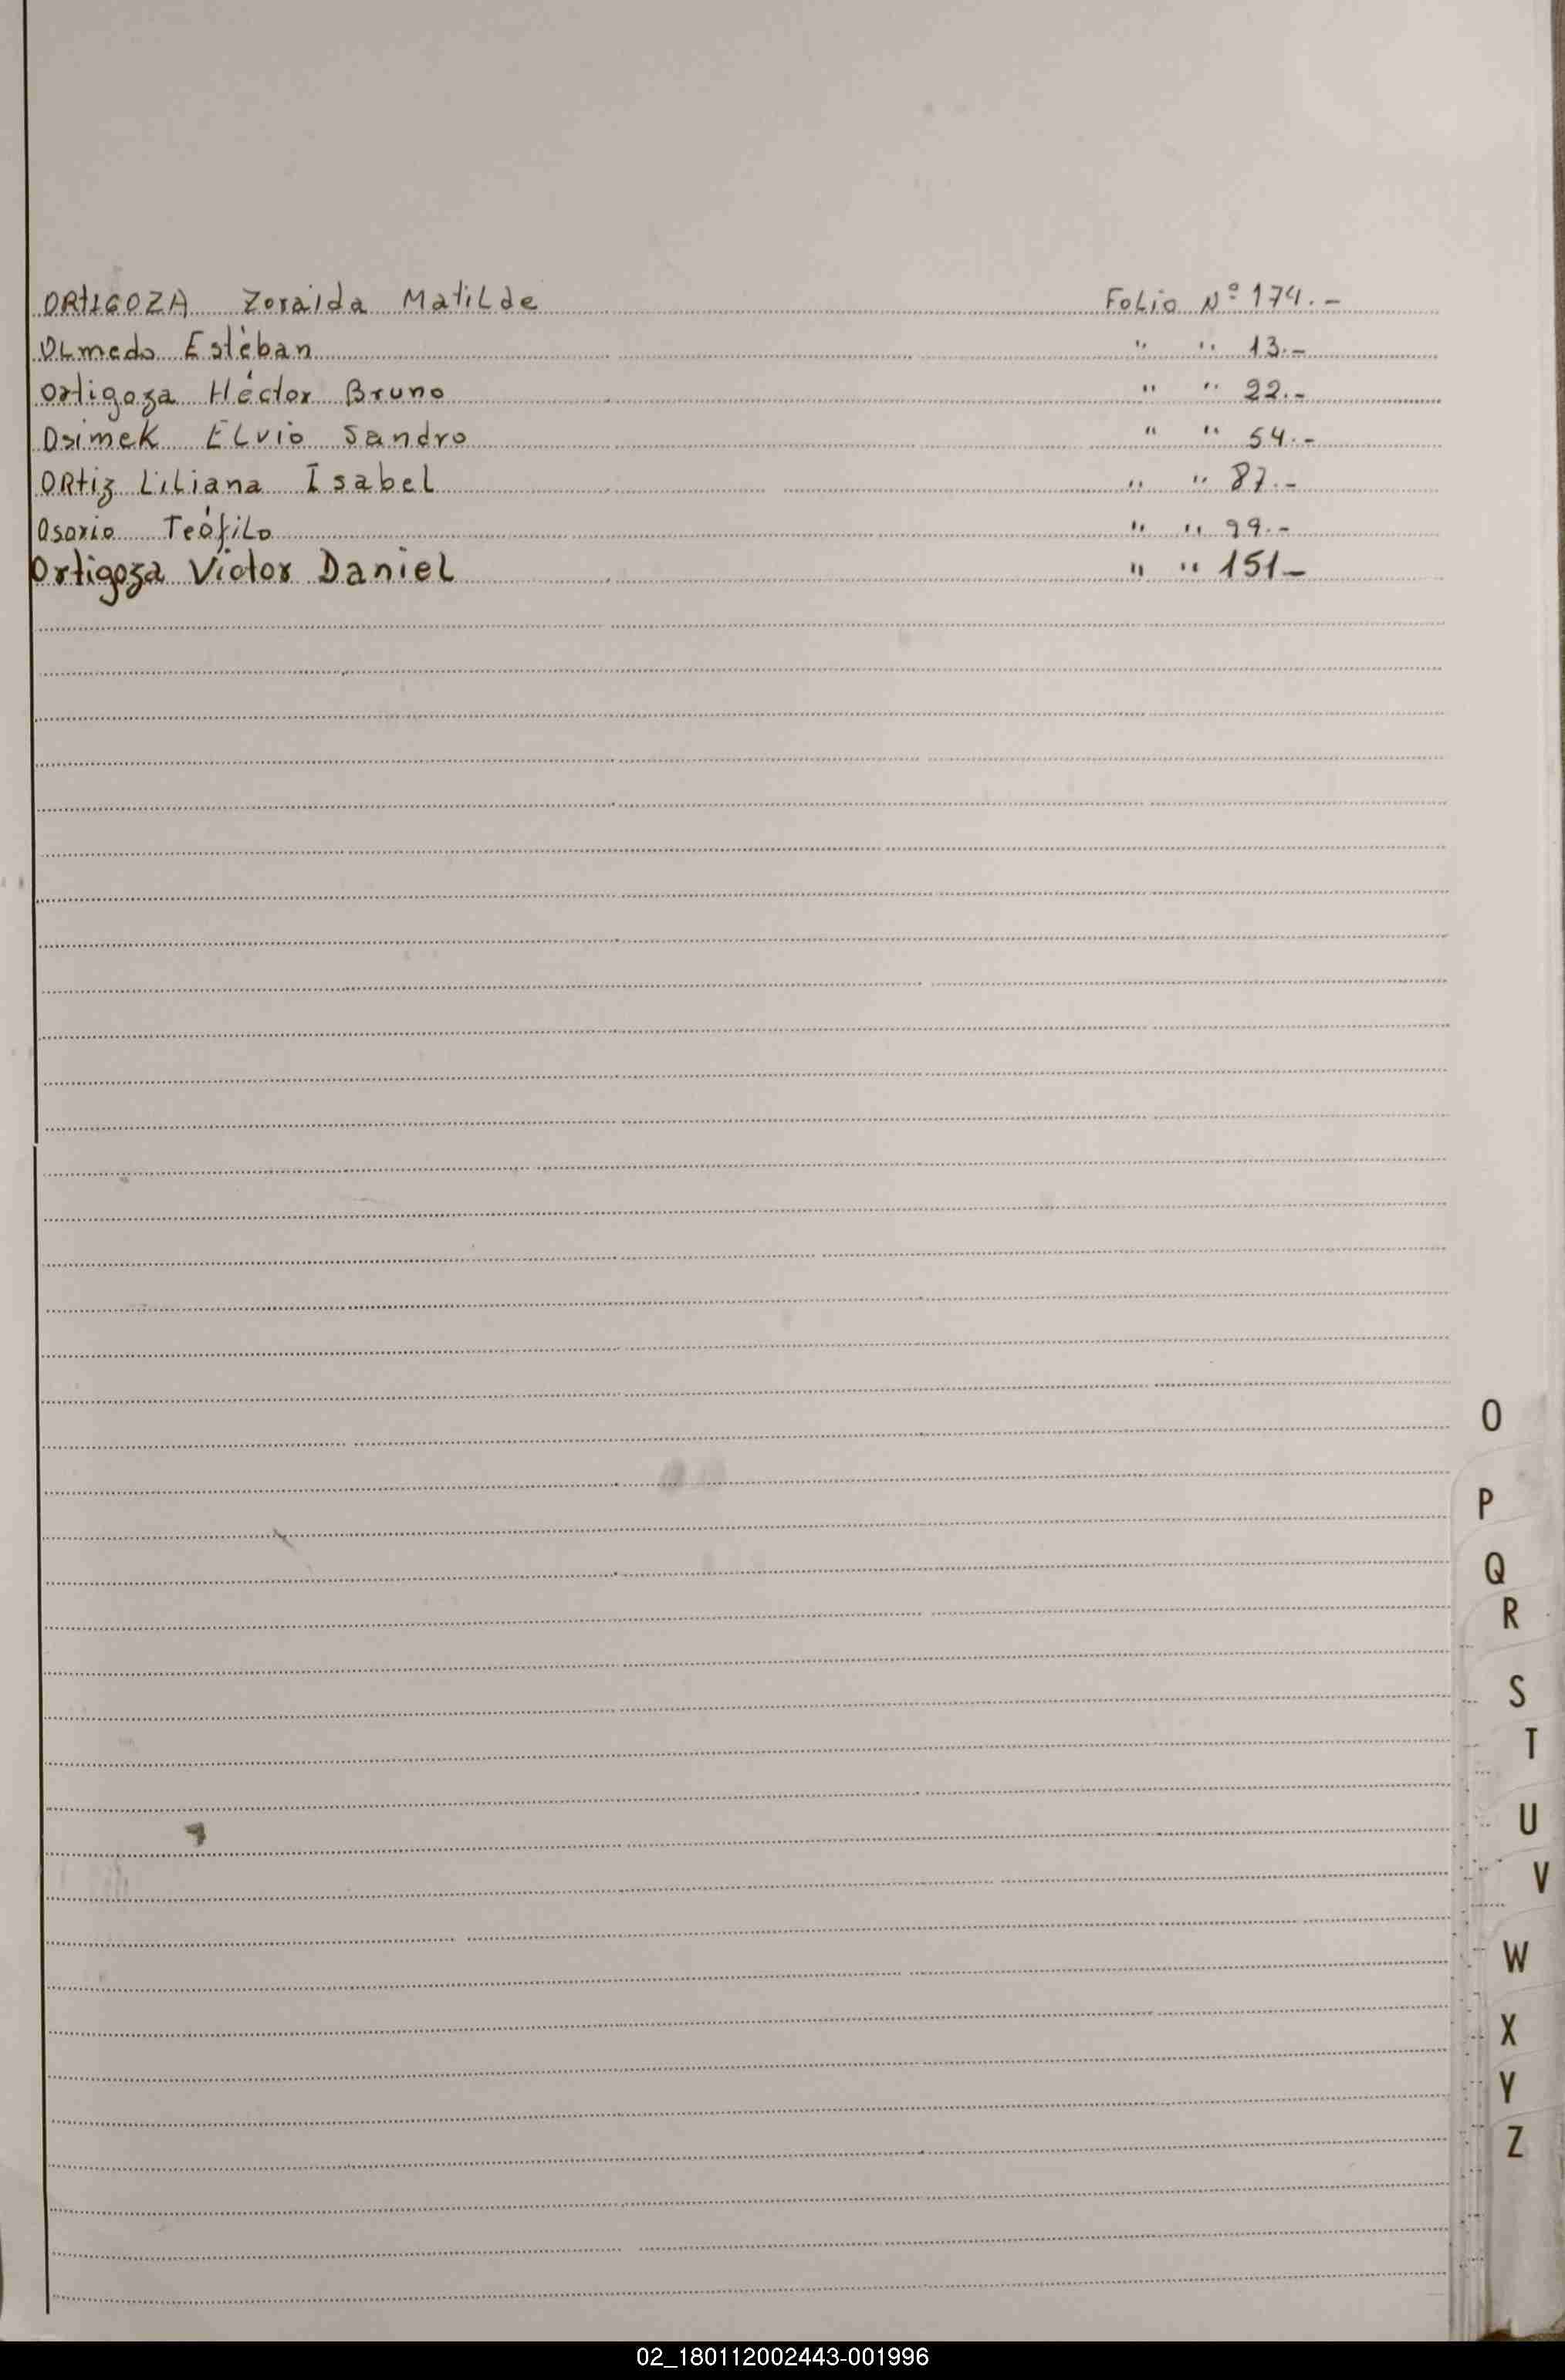 ORtIGOZA Zoraida Matilde Folio Nº 174.-
Olmedo Estéban " " 13.-
Ortigoza Héctor Bruno " " 22.-
Osimek Elvio Sandro " " 54.-
ORtiz Liliana Isabel " " 87.-
Osorio Teófilo " " 99.-
Ortigoza Victor Daniel " " 151-
O
P
Q
R
S
T
U
V
W
X
Y
Z
02_180112002443-001996